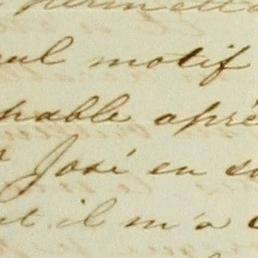 permett
eul motif
pable apré
José en s
il m'a